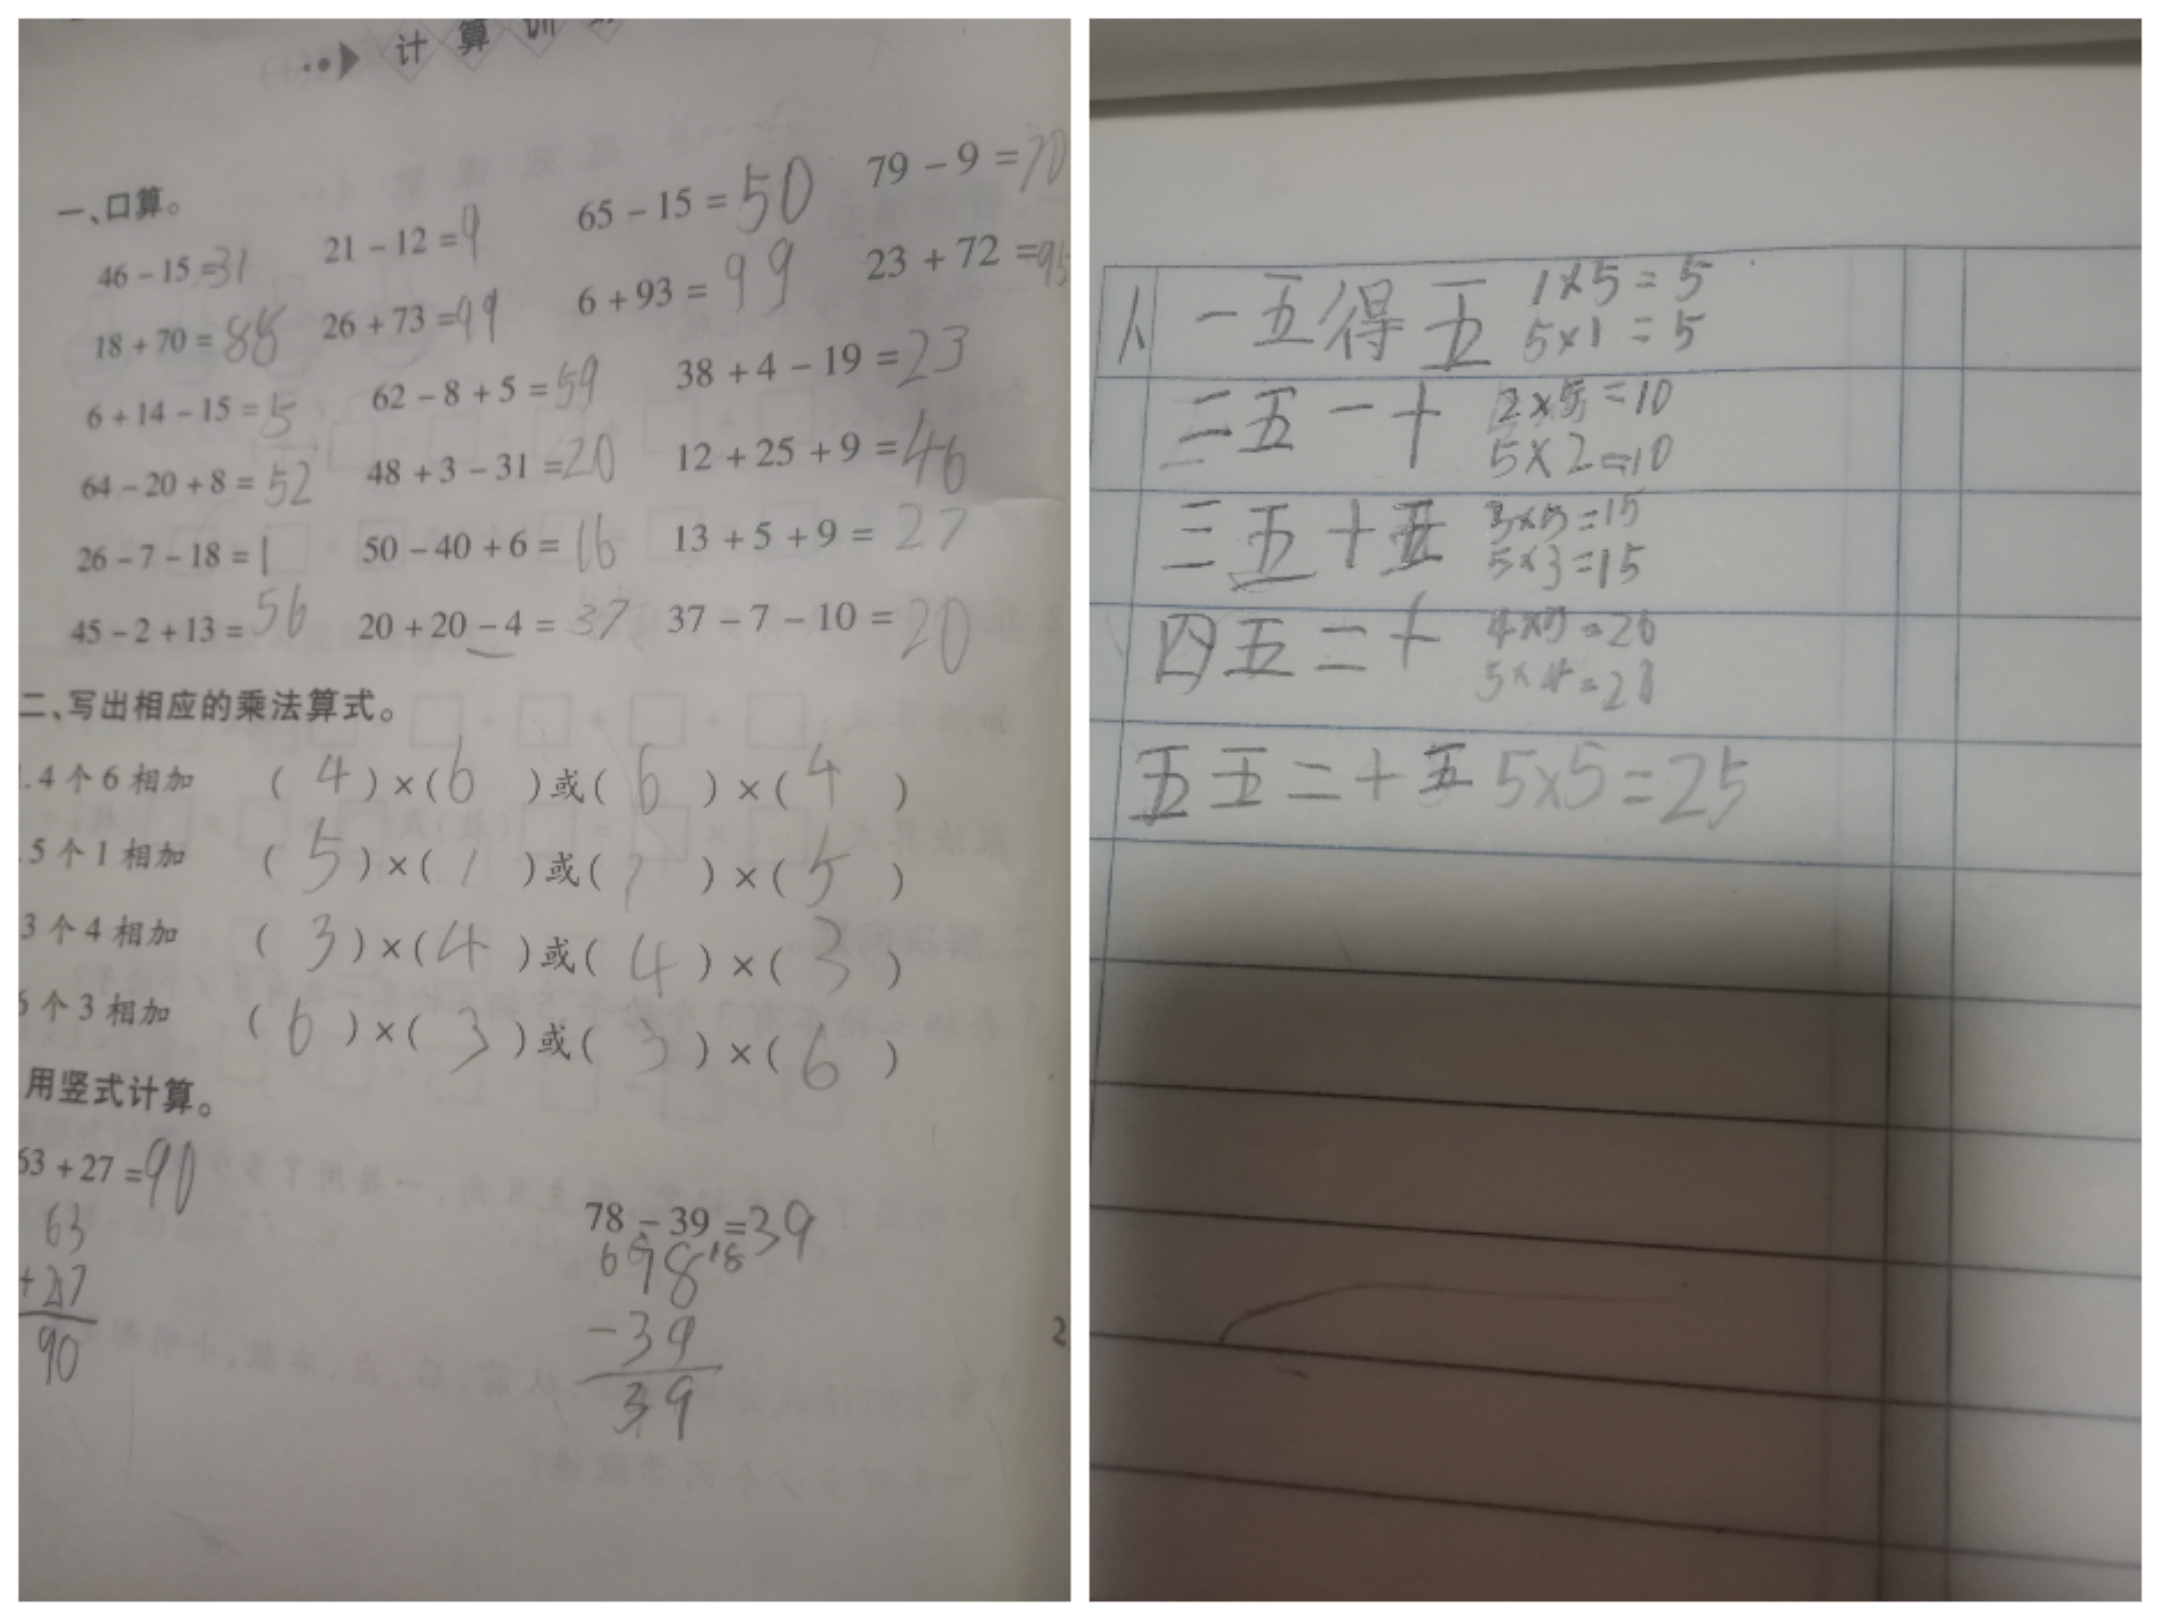 计算训
一、口算。
46-15=31 21-12=9 65-15=50 79-9=70
18+70=88 26+73=99 6+93=99 23+72=95
6+14-15=5 62-8+5=59 38+4-19=23
64-20+8=52 48+3-31=20 12+25+9=46
26-7-18=1 50-40+6=16 13+5+9=27
45-2+13=56 20+20-4=37 37-7-10=20
二、写出相应的乘法算式。
.4个6相加 (4)×(6)或(6)×(4)
.5个1相加 (5)×(1)或(1)×(5)
3个4相加 (3)×(4)或(4)×(3)
个3相加 (6)×(3)或(3)×(6)
用竖式计算。
63+27=90
63
+27
90
78-39=39
78
-39
39
2
一五得五 1×5=5
5×1=5
二五一十 2×5=10
5×2=10
三五十五 3×5=15
5×3=15
四五二十 4×5=20
5×4=
五五二十五 5×5=25